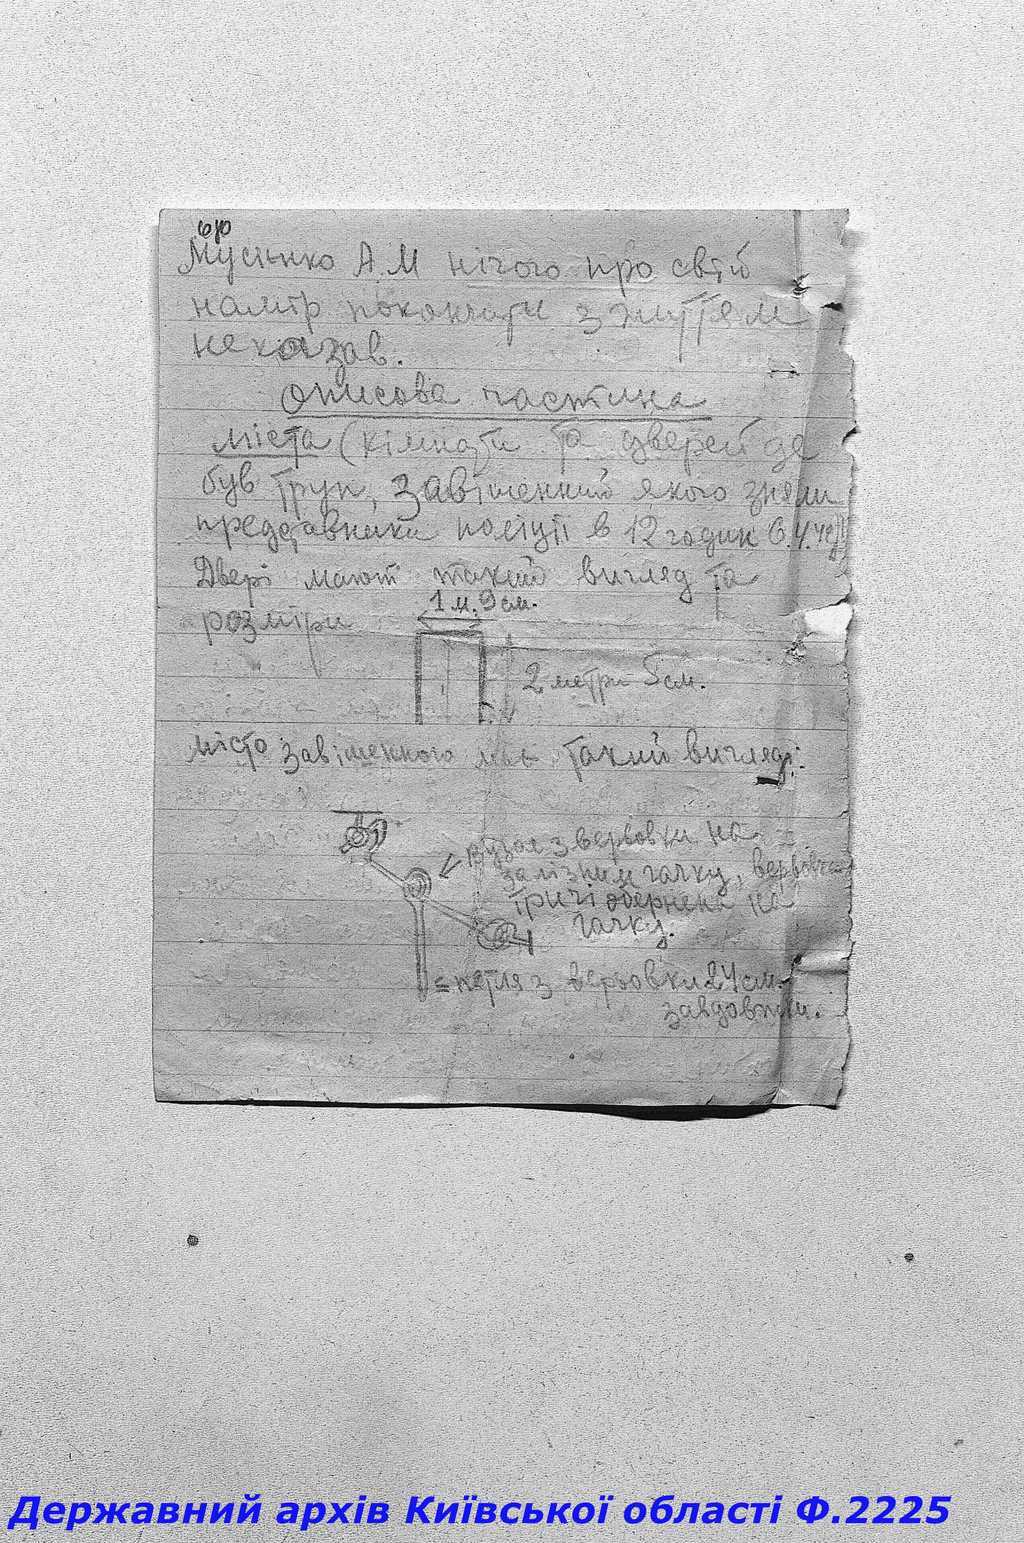 Мусієнко А.М нічого про свій
намір покончати з життям
неказав.
Описова частина
міста (кімнати та дверей де
був труп, завішенний якого зняли
представники поліції в 12 годин 6.4.
Двері мают такий вигляд та
розміри
1 м. 9 см.
2 метри 5 см.
місто завішенного має такий вигляд:
вузол з вервовки на
залізним гачку, вервовка
тричі обернена на
гачку.
= петля з верьовки 24 см.
завдовжки.
Державний архів Київської області Ф.2225